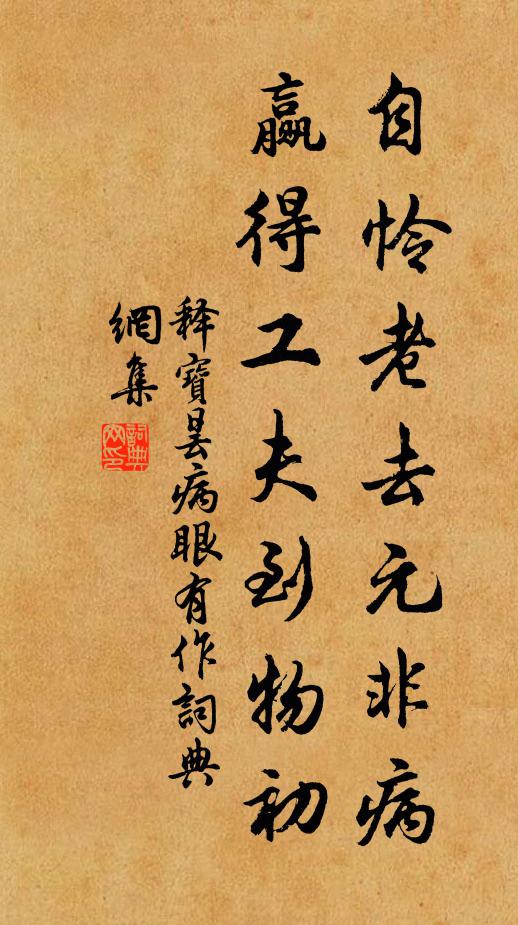 自怜老去元非病
赢得工夫到物初
释寶昙病眼有作詞典
網集
詞典
网印